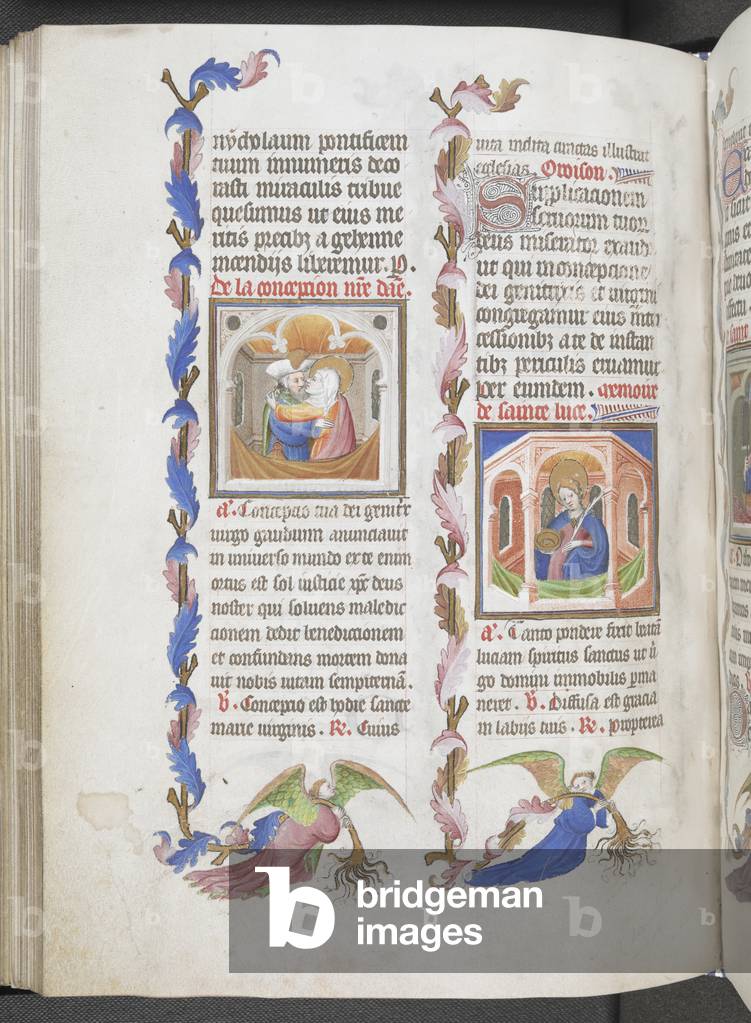 nycholaum pontificem
tuum innumeris deco
rasti miraculis tribue
quesumus ut eius me
ritis precibz a gehenne
incendijs liberemur. P.
De la conception nr̃e daẽ.
a'. Conceptio tua dei genitx̃
virgo gaudium annunciavit
in universo mundo ex te enim
ortus est sol iusticie xp̃c deus
noster qui solvens maledic
cionem dedit benediccionem
et confundens mortem dona
vit nobis vitam sempiternã.
V. Concepcio est hodie sancte
marie virginis. R. Cuius
vita inclita cunctas illustrat
ecclesias. Oroison.
Supplicacionem
servorum tuor
deus miserator exaudi
ut qui in concepcione
dei genitricis et virginis
congregamur eius inter
cessionibz a te de instan
tibz periculis eruamur
per eumdem. memoire
de sainte luce.
a'. Tanto pondere fixit
luciam spiritus sanctus ut vi
go domini immobilis perma
neret. V. Diffusa est gracia
in labijs tuis. R. Propterea
b bridgeman
images